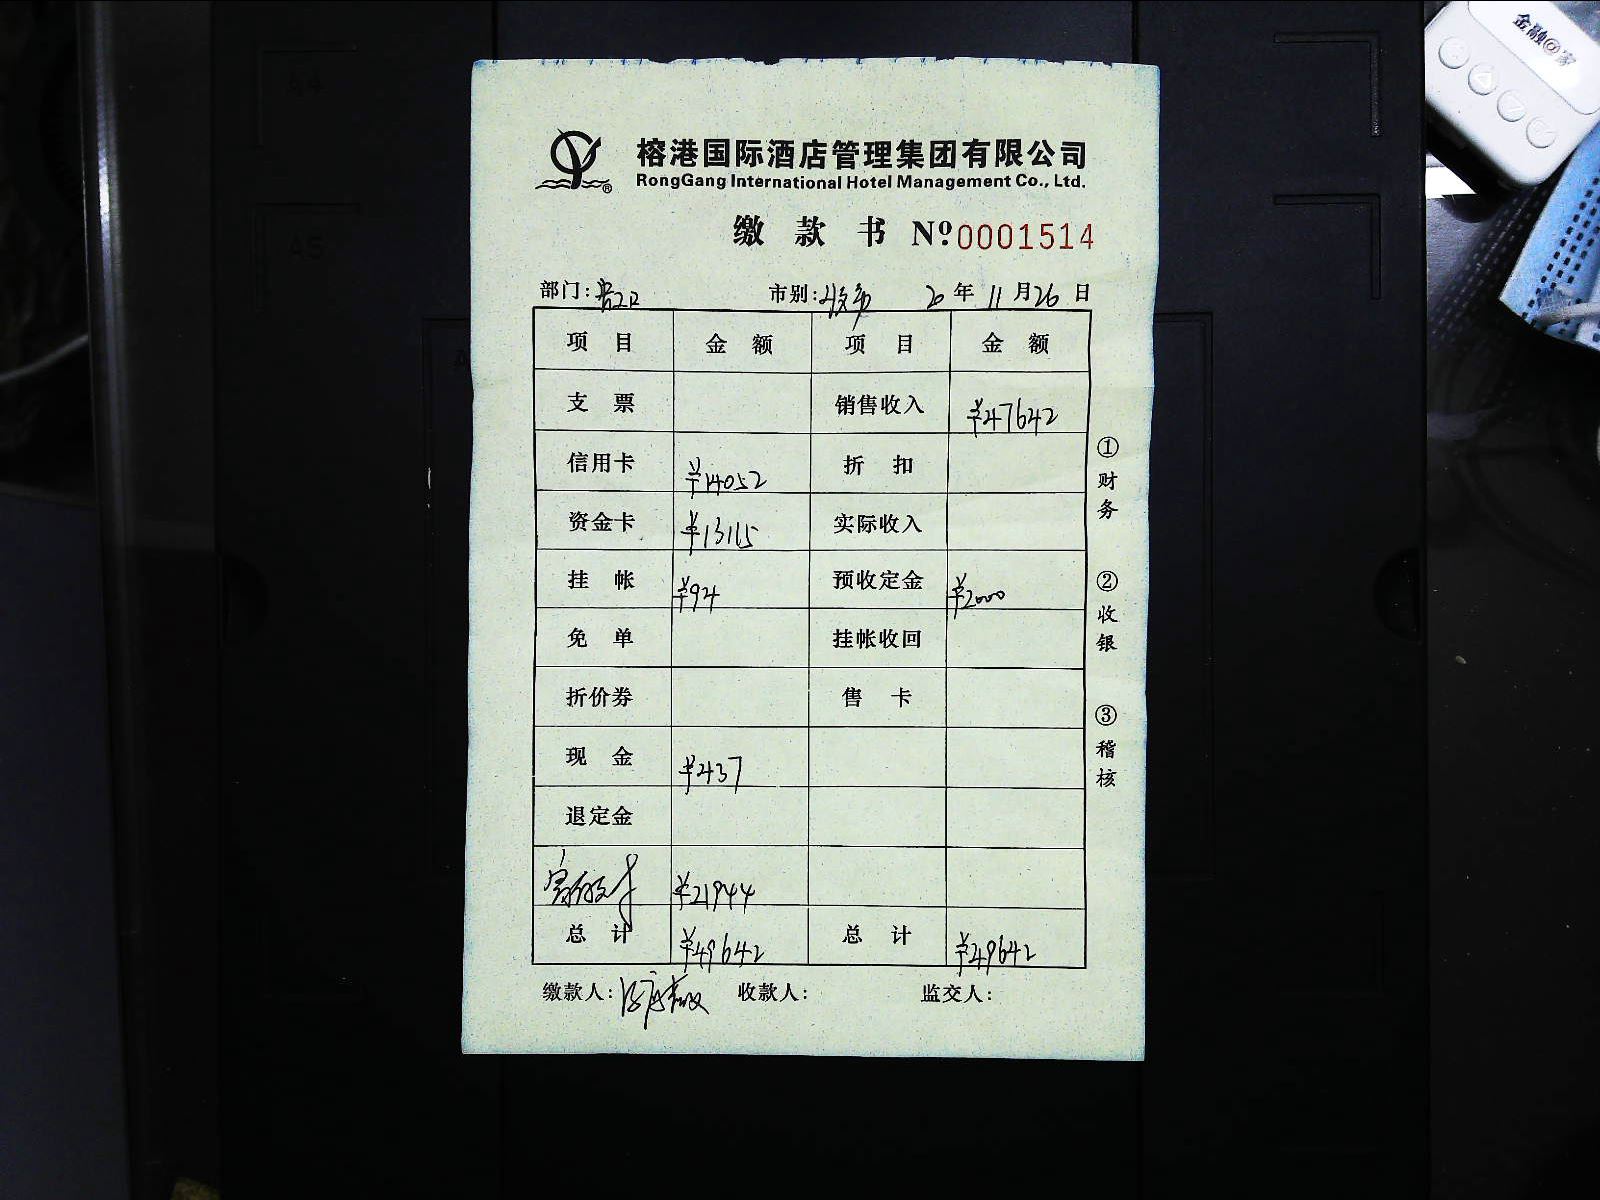 金融@家
榕港国际酒店管理集团有限公司
RongGang International Hotel Management Co., Ltd.
缴款书 Nº0001514
部门: 市别: 20年11月26日
项目 金额 项目 金额
支票 销售收入 ¥47642
信用卡 ¥14052 折扣
资金卡 ¥13115 实际收入
挂帐 ¥94 预收定金 ¥2000
免单 挂帐收回
折价券 售卡
现金 ¥437
退定金
¥21944
总计 ¥49642 总计 ¥49642
缴款人: 收款人: 监交人:
①财务
②收银
③稽核